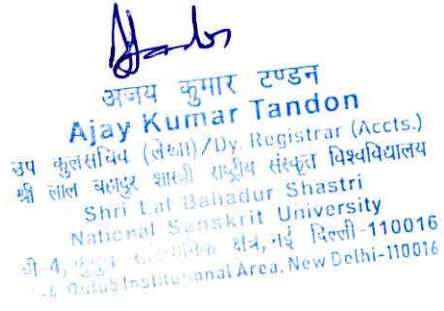 अजय कुमार टण्डन
Ajay Kumar Tandon
उप कुलसचिव (लेखा)/Dy. Registrar (Accts.)
श्री लाल बहादुर शास्त्री राष्ट्रीय संस्कृत विश्वविद्यालय
Shri Lal Bahadur Shastri
National Sanskrit University
क्षेत्र, नई दिल्ली-110016
Qutub Institutional Area, New Delhi-110016